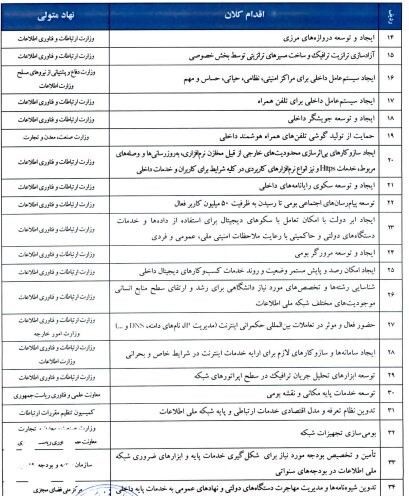 ردیف اقدام کلان نهاد متولی
۱۴ ایجاد و توسعه دروازه‌های مرزی وزارت ارتباطات و فناوری اطلاعات
۱۵ آزادسازی ترانزیت ترافیک و ساخت مسیرهای ترانزیتی توسط بخش خصوصی وزارت ارتباطات و فناوری اطلاعات
۱۶ ایجاد سیستم‌عامل داخلی برای مراکز امنیتی، نظامی، حیاتی، حساس و مهم وزارت دفاع و پشتیبانی از نیروهای مسلح
وزارت ارتباطات و فناوری اطلاعات
۱۷ ایجاد سیستم‌عامل داخلی برای تلفن همراه وزارت ارتباطات و فناوری اطلاعات
۱۸ ایجاد و توسعه جویشگر داخلی وزارت ارتباطات و فناوری اطلاعات
۱۹ حمایت از تولید گوشی تلفن‌های همراه هوشمند داخلی وزارت صنعت، معدن و تجارت
۲۰ ایجاد سازوکارهای بی‌اثرسازی محدودیت‌های خارجی از قبیل مخازن نرم‌افزاری، به‌روزرسانی‌ها و وصله‌های
مربوط، خدمات Https و نیز انواع نرم‌افزارهای کاربردی در کلیه شرایط برای کاربران و خدمات داخلی وزارت ارتباطات و فناوری اطلاعات
۲۱ ایجاد و توسعه سکوی رایانامه‌های داخلی وزارت ارتباطات و فناوری اطلاعات
۲۲ توسعه پیام‌رسان‌های اجتماعی بومی تا رسیدن به ظرفیت ۵۰ میلیون کاربر فعال وزارت ارتباطات و فناوری اطلاعات
۲۳ ایجاد ابر دولت با امکان تعامل با سکوهای دیجیتال برای استفاده از داده‌ها و خدمات
دستگاه‌های دولتی و حاکمیتی با رعایت ملاحظات امنیتی ملی، عمومی و فردی وزارت ارتباطات و فناوری اطلاعات
۲۴ ایجاد و توسعه مرورگر بومی وزارت ارتباطات و فناوری اطلاعات
۲۵ ایجاد امکان رصد و پایش مستمر وضعیت و روند خدمات کسب‌وکارهای دیجیتال داخلی وزارت ارتباطات و فناوری اطلاعات
۲۶ شناسایی رشته‌ها و تخصص‌های مورد نیاز دانشگاهی برای رشد و ارتقای سطح منابع انسانی
موجودیت‌های مختلف شبکه ملی اطلاعات وزارت ارتباطات و فناوری اطلاعات
۲۷ حضور فعال و موثر در تعاملات بین‌المللی حکمرانی اینترنت (مدیریت IP، نام‌های دامنه، DNS و ...) وزارت ارتباطات و فناوری اطلاعات
وزارت امور خارجه
۲۸ ایجاد سامانه‌ها و سازوکارهای لازم برای ارایه خدمات اینترنت در شرایط خاص و بحرانی وزارت ارتباطات و فناوری اطلاعات
وزارت اطلاعات
۲۹ توسعه ابزارهای تحلیل جریان ترافیک در سطح اپراتورهای شبکه وزارت ارتباطات و فناوری اطلاعات
۳۰ توسعه خدمات پایه مکانی و نقشه بومی معاونت علمی و فناوری ریاست‌جمهوری
۳۱ تدوین نظام تعرفه و مدل اقتصادی خدمات ارتباطی و پایه شبکه ملی اطلاعات کمیسیون تنظیم مقررات ارتباطات
۳۲ بومی‌سازی تجهیزات شبکه وزارت تجارت
معاونت
۳۳ تأمین و تخصیص بودجه مورد نیاز برای شکل‌گیری خدمات پایه و ابزارهای ضروری شبکه
ملی اطلاعات در بودجه‌های سنواتی سازمان و بودجه
۳۴ تدوین شیوه‌نامه‌ها و مدیریت مهاجرت دستگاه‌های دولتی و نهادهای عمومی به خدمات پایه داخلی مرکز ملی فضای مجازی